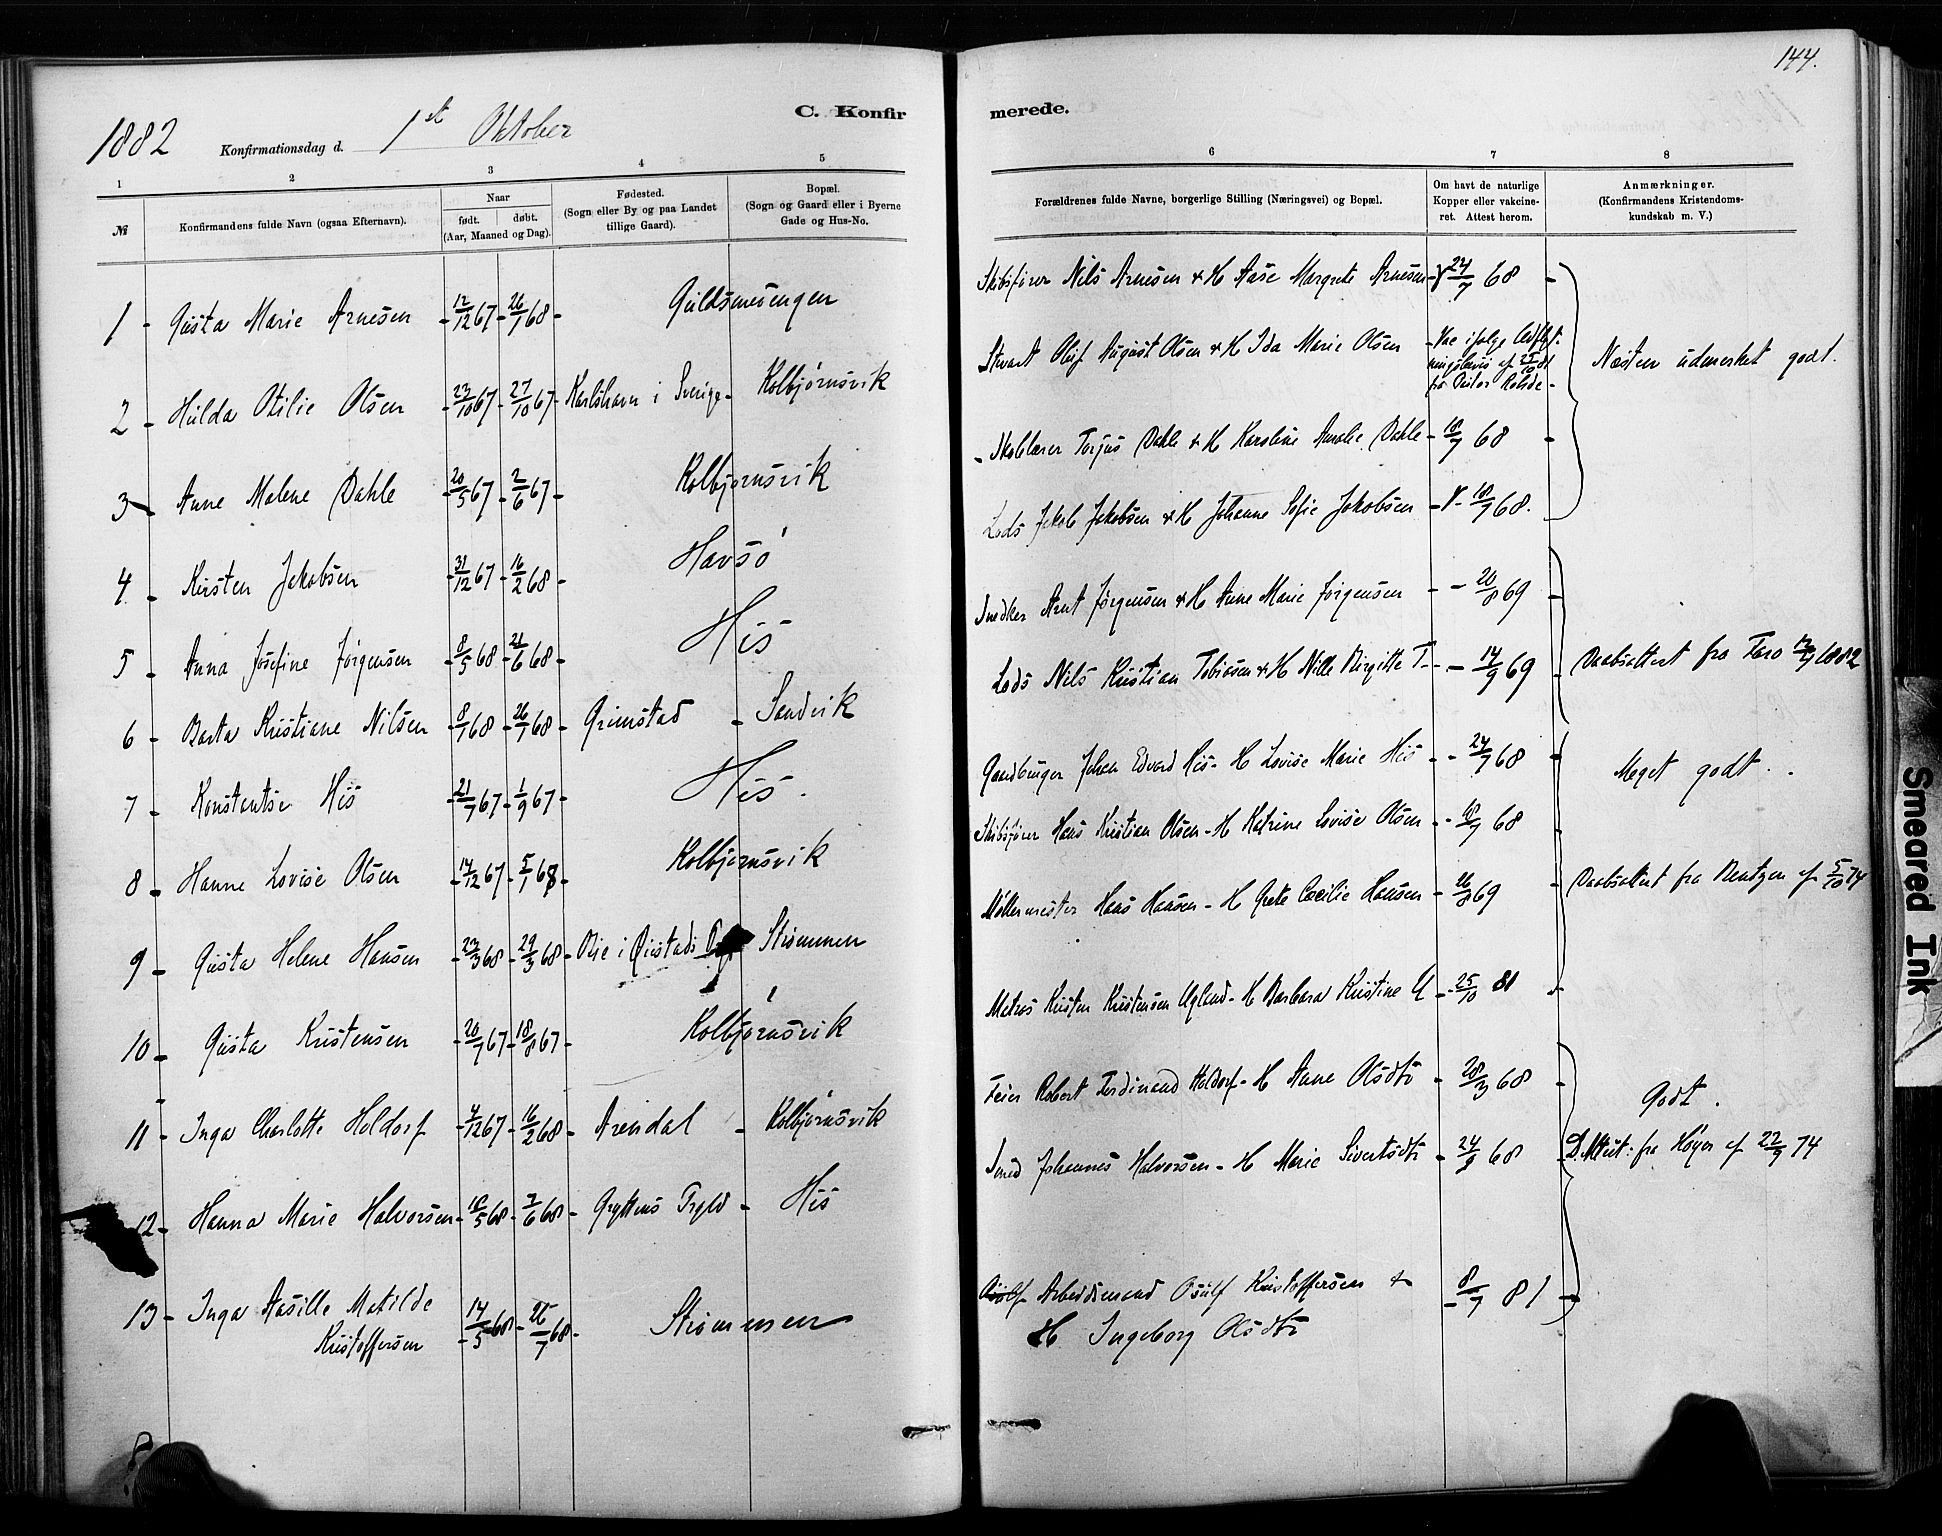 144.
1882 Konfirmationsdag d. 1ste Oktober
C. Konfirmerede.
1 2 3 4 5 6 7 8
№
Konfirmandens fulde Navn (ogsaa Efternavn).
Naar
født. døbt.
(Aar, Maaned og Dag).
Fødested.
(Sogn eller By og paa Landet
tillige Gaard).
Bopæl.
(Sogn og Gaard eller i Byerne
Gade og Hus-No.
Forældrenes fulde Navne, borgerlige Stilling (Næringsvei) og Bopæl.
Om havt de naturlige
Kopper eller vakcine-
ret. Attest herom.
Anmærkninger.
(Konfirmandens Kristendoms-
kundskab m. V.)
1 Gusta Marie Arnesen 12/12 67 26/1 68 Guldsmedengen Skibsfører Nils Arnesen & H Aase Margrete Arnesen 24/7 68
2 Hulda Otilie Olsen 23/10 67 27/10 67 Karlshavn i Sverige Kolbjörnsvik Stuart Oluf August Olsen & H Ida Marie Olsen Vac ifølge
Næsten udmerket godt.
3 Anne Malene Dahle 20/5 67 2/6 67 Kolbjørnsvik Skolelærer Torjus Dahle & H Karoline Amalie Dahle 18/7 68
4 Kirsten Jakobsen 31/12 67 16/2 68 Havsö Lods Jakob Jakobsen & H Johanne Sofie Jakobsen 18/7 68.
5 Anna Josefine Jörgensen 8/5 68 21/6 68 His Snedker Arnt Jörgensen & H Anne Marie Jörgensen 20/8 69
6 Berta Kristiane Nilsen 8/1 68 26/1 68 Grimstad Sandvik Lods Nils Kristian Tobiasen & H Nille Birgitte T 14/9 69 Daabsattest fra 1882
7 Konstantse His 21/7 67 1/9 67 His. Gaardbruger Johan Edvard His - H Lovise Marie His 24/7 68
Meget godt.
8 Hanne Lovise Olsen 14/12 67 5/1 68 Kolbjørnsvik Skibsfører Hans Kristian Olsen - H Katrine Lovise Olsen 18/7 68
9 Gusta Helene Hansen 23/3 68 29/3 68 i Øiestads Strømmen Møllermester Hans Hansen - H Grete Cæcilie Hansen 26/8 69 Daabsattest fra Bentzen af 5/10 74
10 Gusta Kristensen 20/7 67 18/8 67 Kolbjørnsvik Matros Kristen Kristensen Ugland - H Barbara Kristine U 25/10 81
11 Inga Charlotte Holdorf 4/12 67 16/2 68 Arendal Kolbjørnsvik Feier Robert Ferdinand Holdorf - H Anne Olsdtr 28/3 68
Godt.
12 Hanna Marie Halvorsen 18/5 68 7/6 68 His Johannes Halvorsen - H Marie Sivertsdtr 24/9 68 D.Attest: fra Høyer af 22/9 74
13 Inga Aasille Matilde
Kristoffersen 14/5 68 26/7 68 Strömmen Arbeidsmand Osulf Kristoffersen &
H Ingeborg Olsdtr 8/7 81
Smeared Ink